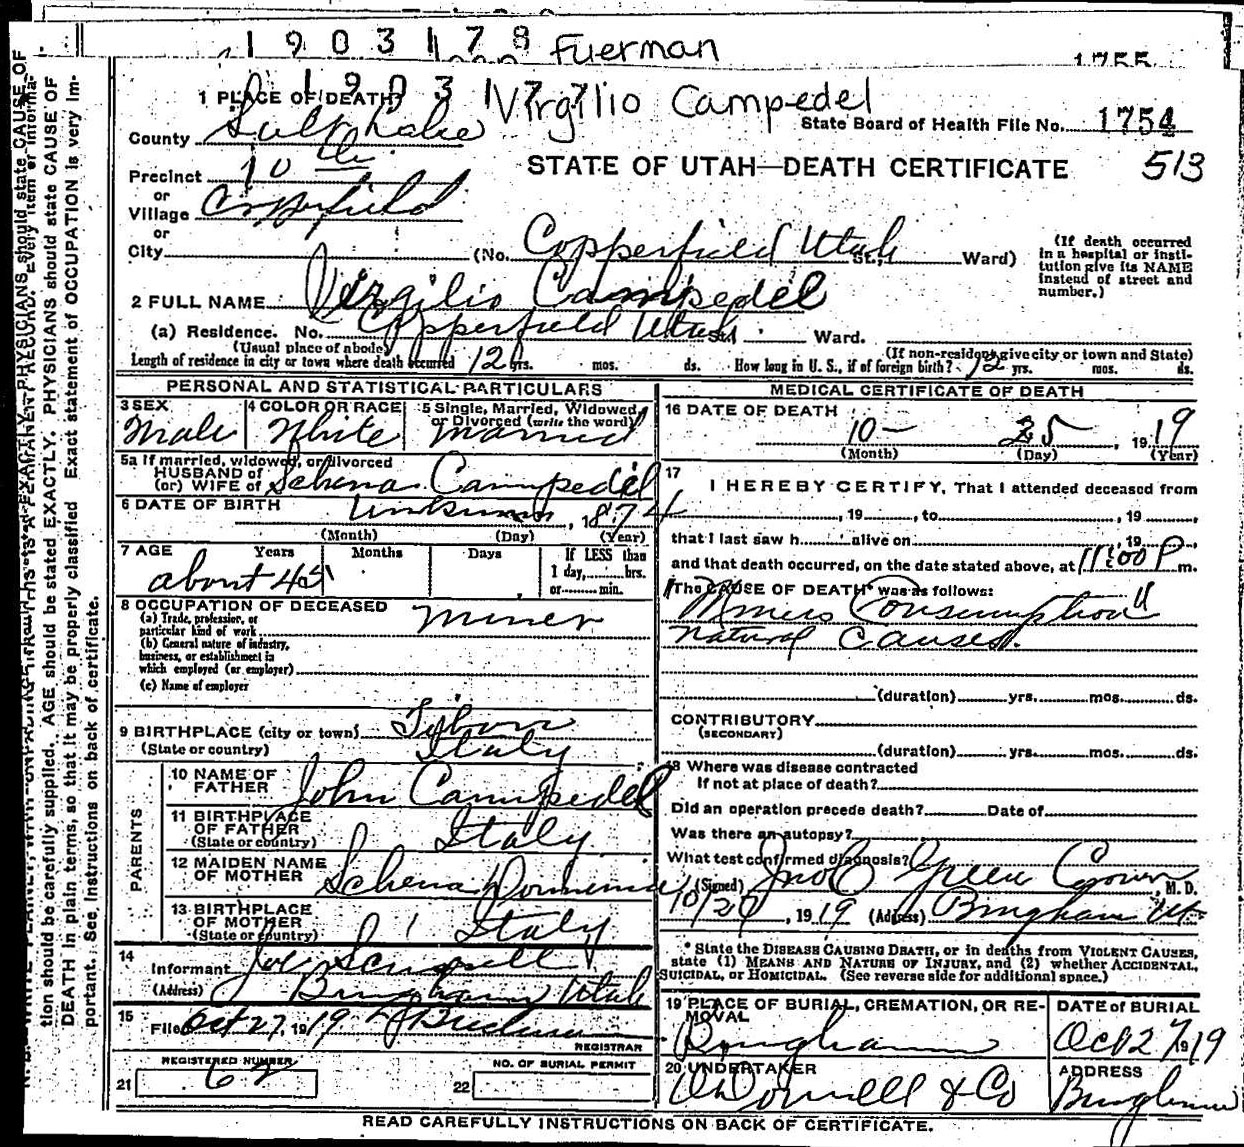 1903178 Fuerman 1755
1903177 Virgilio Campedel
1 PLACE OF DEATH
State Board of Health File No. 1754
County Salt Lake
STATE OF UTAH—DEATH CERTIFICATE 513
Precinct 10 th
or
Village Copperfield
or
City (No. Copperfield Utah St., Ward)
(If death occurred in a hospital or institution give its NAME instead of street and number.)
2 FULL NAME Virgilio Campedel
(a) Residence. No. Copperfield Utah St. Ward.
(Usual place of abode) (If non-resident give city or town and State)
Length of residence in city or town where death occurred 12 yrs. mos. ds. How long in U. S., if of foreign birth? 12 yrs. mos. ds.
PERSONAL AND STATISTICAL PARTICULARS
3 SEX 4 COLOR OR RACE 5 Single, Married, Widowed, or Divorced (write the word)
Male White Married
5a If married, widowed, or divorced
HUSBAND of
(or) WIFE of Schena Campedel
6 DATE OF BIRTH Unknown, 1874
(Month) (Day) (Year)
7 AGE Years Months Days If LESS than
1 day, hrs.
or min.
about 45
8 OCCUPATION OF DECEASED
(a) Trade, profession, or
particular kind of work Miner
(b) General nature of industry,
business, or establishment in
which employed (or employer)
(c) Name of employer
9 BIRTHPLACE (city or town)
(State or country) Italy
PARENTS
10 NAME OF
FATHER John Campedel
11 BIRTHPLACE
OF FATHER
(State or country) Italy
12 MAIDEN NAME
OF MOTHER Schena
13 BIRTHPLACE
OF MOTHER
(State or country) Italy
14
Informant Joe
(Address) Bingham Utah
15
Filed Oct 27, 1919
REGISTRAR
REGISTERED NUMBER NO. OF BURIAL PERMIT
21 62 22
MEDICAL CERTIFICATE OF DEATH
16 DATE OF DEATH
10 - 25, 1919
(Month) (Day) (Year)
17
I HEREBY CERTIFY, That I attended deceased from
, 19 , to , 19 ,
that I last saw h alive on , 19
and that death occurred, on the date stated above, at 11:00 P m.
The CAUSE OF DEATH* was as follows:
"Miners Consumption"
Natural Causes.
(duration) yrs. mos. ds.
CONTRIBUTORY
(SECONDARY)
(duration) yrs. mos. ds.
18 Where was disease contracted
If not at place of death?
Did an operation precede death? Date of
Was there an autopsy?
What test confirmed diagnosis?
(Signed) Jno C Green Coroner, M. D.
10/27, 1919 (Address) Bingham Ut
* State the DISEASE CAUSING DEATH, or in deaths from VIOLENT CAUSES,
state (1) MEANS AND NATURE OF INJURY, and (2) whether ACCIDENTAL,
SUICIDAL, or HOMICIDAL. (See reverse side for additional space.)
19 PLACE OF BURIAL, CREMATION, OR REMOVAL DATE of BURIAL
Bingham Oct 27 1919
20 UNDERTAKER ADDRESS
O'Donnell & Co Bingham
READ CAREFULLY INSTRUCTIONS ON BACK OF CERTIFICATE.
tion should be carefully supplied. AGE should be stated EXACTLY. PHYSICIANS should state CAUSE OF
DEATH in plain terms, so that it may be properly classified. Exact statement of OCCUPATION is very im-
portant. See instructions on back of certificate.